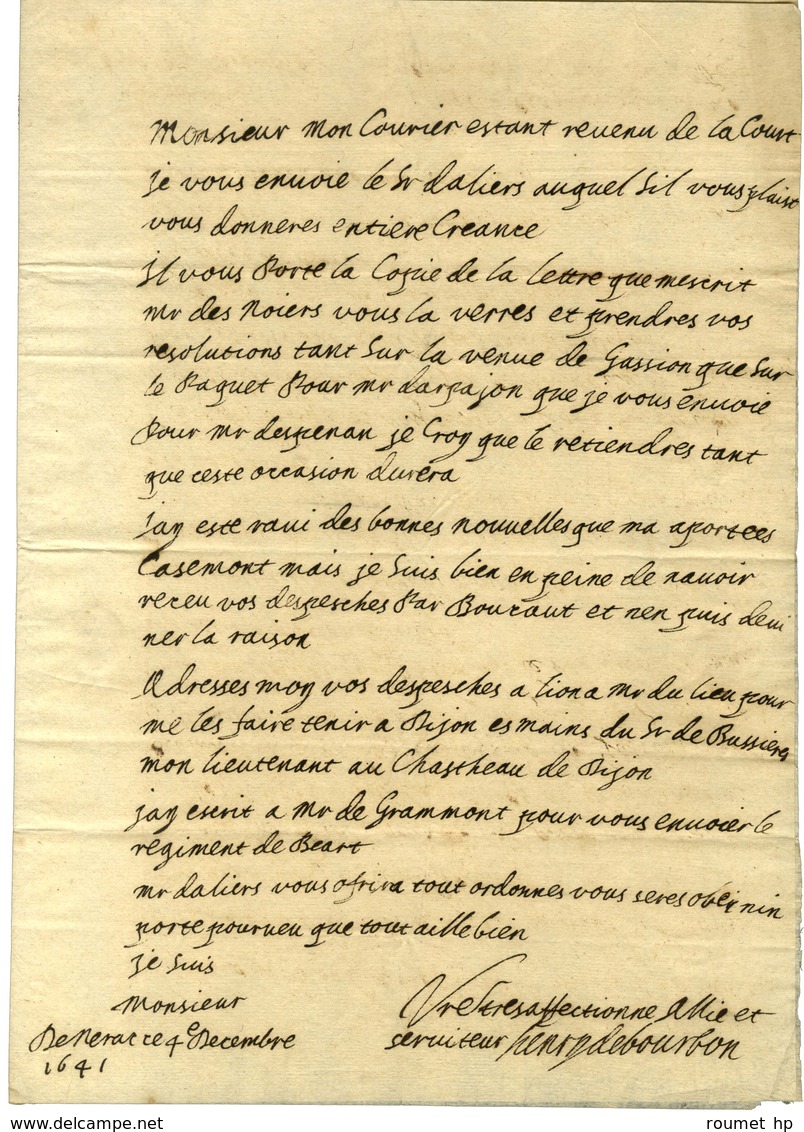 Monsieur mon Courier estant revenu de la Court
je vous envoie le Sr daliers auquel sil vous plaist
vous donneres entiere Creance
Il vous Porte la Copie de la lettre que mescrit
mr des Noiers vous la verres et prendres vos
resolutions tant sur la venue de Gassion que sur
le Paquet Pour mr darpajon que je vous envoie
Pour mr despenan je Croy que le retiendres tant
que ceste occasion durera
Jay este ravi des bonnes nouvelles que ma aportees
Casemont mais je suis bien en peine de navoir
receu vos despesches Par Boucaut et nen puis devi
ner la raison
Adresses moy vos despesches a lion a mr du lieu pour
me les faire tenir a Dijon es mains du Sr de Bussieres
mon lieutenant au Chastheau de Dijon
jay escrit a mr de Grammont pour vous envoier le
regiment de Beart
mr daliers vous ofrira tout ordonnes vous seres obei nin
porte pourveu que tout aille bien
je suis
Monsieur
Vre tres affectionne Allie et
serviteur henry de bourbon
De Nerac ce 4e Decembre
1641
roumet hp
www.delcampe.net